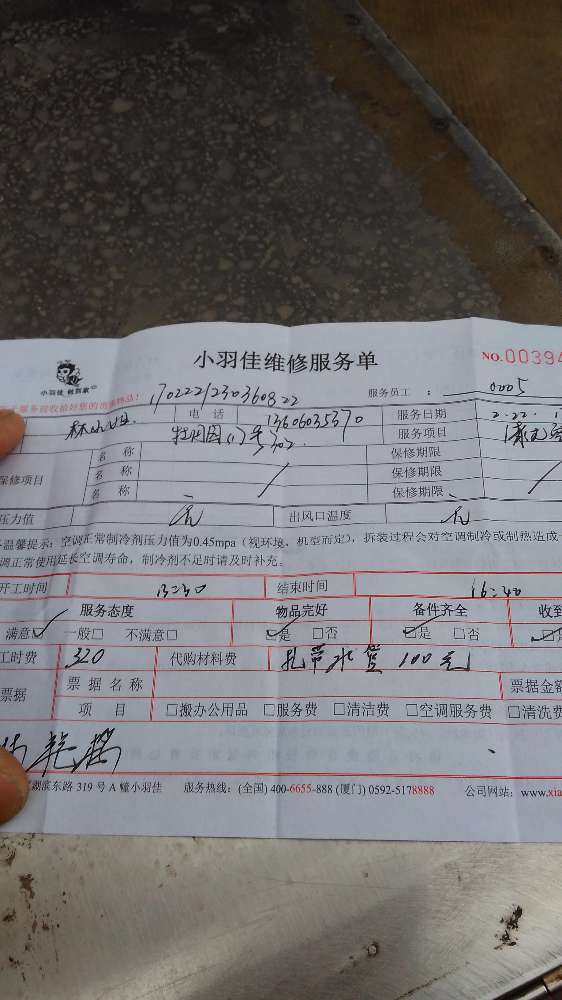 小羽佳维修服务单
NO.00394
小羽佳 做到家
1702221230360822
服务员工： 0005
电 话 13606035370 服务日期 2.22.1
302 服务项目
保修项目 名 称 保修期限
名 称 保修期限
名 称 保修期限
压力值 无 出风口温度 无
温馨提示：空调正常制冷剂压力值为0.45mpa（视环境、机型而定），拆装过程会对空调制冷或制热造成一
调正常使用延长空调寿命，制冷剂不足时请及时补充。
开工时间 13:30 结束时间 16:40
服务态度 物品完好 备件齐全 收到
满意☑ 一般□ 不满意□ ☑是 □否 ☑是 □否
工时费 320 代购材料费 扎带水管 100元
票据 票据名称 票据金额
项 目 □搬办公用品 □服务费 □清洁费 □空调服务费 □清洗费
湖滨东路 319 号 A 幢小羽佳 服务热线：(全国) 400-6655-888 (厦门) 0592-5178888 公司网站：www.xia